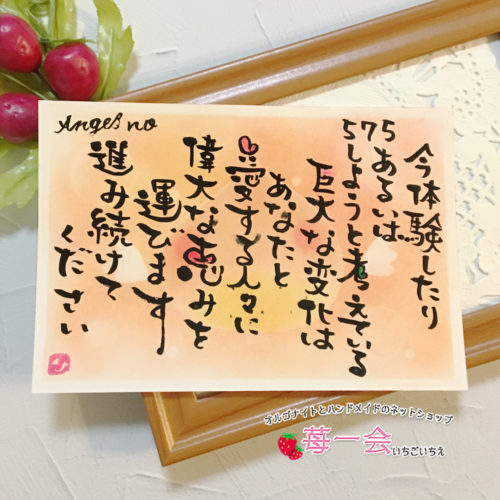 Angel no
575
今体験したり
あるいは
しようと考えている
巨大な変化は
あなたと
愛する人々に
偉大な恵みを
運びます
進み続けて
ください
オルゴナイトとハンドメイドのネットショップ
苺一会 いちごいちえ